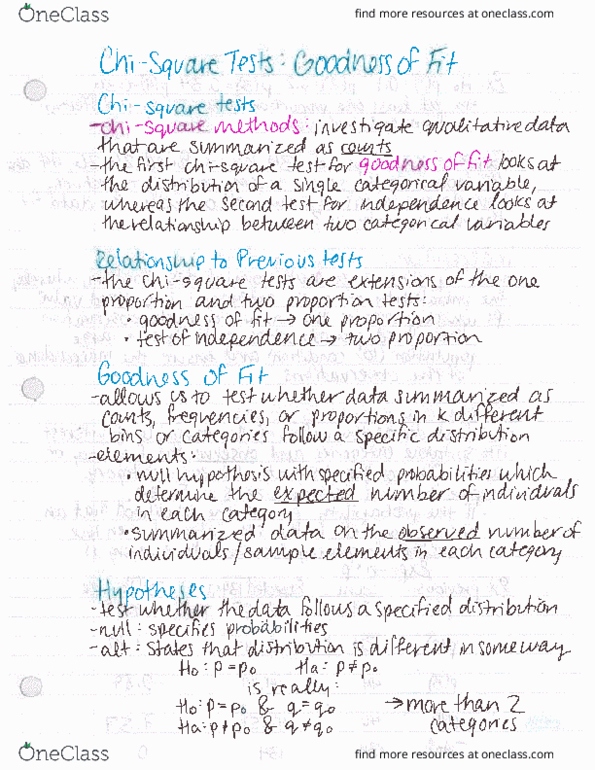 OneClass
find more resources at oneclass.com
Chi-Square Tests: Goodness of Fit
Chi-square tests
-chi-square methods: investigate qualitative data
that are summarized as counts
-the first chi-square test for goodness of fit looks at
the distribution of a single categorical variable,
whereas the second test for independence looks at
the relationship between two categorical variables
Relationship to Previous tests
-the chi-square tests are extensions of the one
proportion and two proportion tests:
• goodness of fit → one proportion
• test of independence → two proportion
Goodness of Fit
-allows us to test whether data summarized as
counts, frequencies, or proportions in k different
bins or categories follow a specific distribution
-elements:
• null hypothesis with specified probabilities which
determine the expected number of individuals
in each category
• summarized data on the observed number of
individuals/sample elements in each category
Hypotheses
-test whether the data follows a specified distribution
-null: specifies probabilities
-alt: states that distribution is different in some way
H₀: p = p₀ Ha: p ≠ p₀
is really:
H₀: p = p₀ & q = q₀ → more than 2
Ha: p ≠ p₀ & q ≠ q₀ categories
OneClass
find more resources at oneclass.com